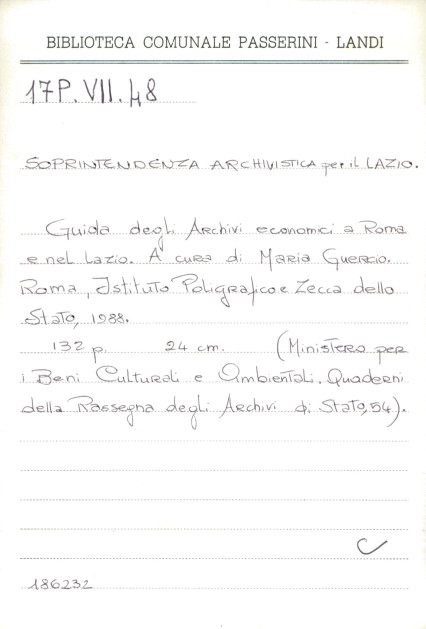 BIBLIOTECA COMUNALE PASSERINI - LANDI
17P.VII.48
SOPRINTENDENZA ARCHIVISTICA per il LAZIO.
Guida degli Archivi economici a Roma
e nel Lazio. A cura di Maria Guercio.
Roma, Istituto Poligrafico e Zecca dello
Stato, 1988.
132 p. 24 cm. (Ministero per
i Beni Culturali e Ambientali. Quaderni
della Rassegna degli Archivi di Stato, 54).
C
186232